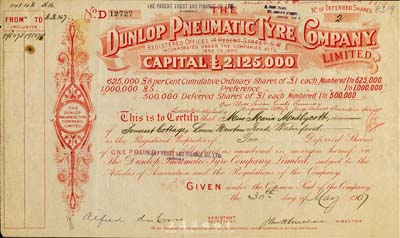 THE PARENT TRUST AND FINANCE CO. LTD.
No. D 12727
No. OF DEFERRED SHARES.
2
FROM TO
INCLUSIVE
DUNLOP PNEUMATIC TYRE COMPANY
LIMITED.
REGISTERED OFFICES 14 REGENT STREET, S.W.
INCORPORATED UNDER THE COMPANIES ACTS
1862 TO 1890.
CAPITAL £2,125,000
625,000 £8 per Cent Cumulative Ordinary Shares of £1 each Numbered 1 to 625,000.
1,000,000 £5 Preference 1 to 1,000,000
500,000 Deferred Shares of £1 each Numbered 1 to 500,000.
This is to Certify that Miss Maria Medlycott
of Somerset Cottage, Lower Newton Road, Waterford,
is the Registered Proprietor of Two Deferred Shares
OF ONE POUND each numbered as in margin hereof in
The Dunlop Pneumatic Tyre Company Limited subject to the
Articles of Association and the Regulations of the Company.
THE DUNLOP
PNEUMATIC TYRE
COMPANY
LIMITED
GIVEN under the Common Seal of the Company
the 30th day of May 1907
ASSISTANT
SECRETARY.
DIRECTOR